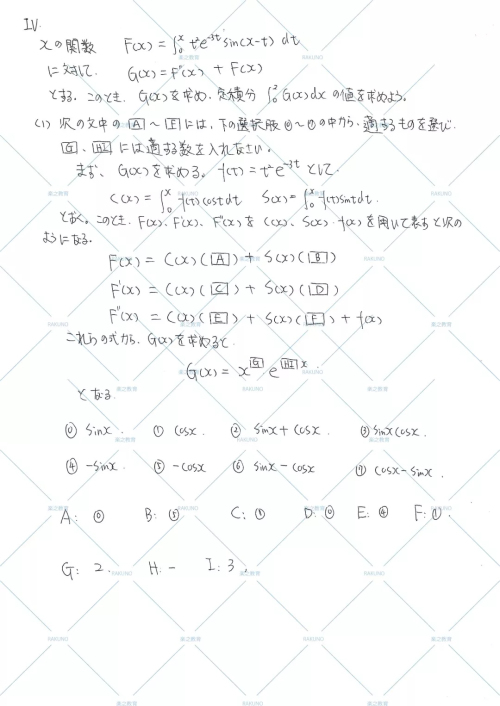 IV.
xの関数 F(x) = ∫₀ˣ t²e⁻³ᵗ sin(x-t) dt
に対して. G(x) = F''(x) + F(x)
とする. このとき. G(x)を求め. 定積分 ∫₀² G(x)dx の値を求めよう.
(1) 次の文中の A ~ F には, 下の選択肢 ⓪~⑦の中から, 適するものを選び.
G、HI には適する数を入れなさい.
まず、G(x)を求める. f(t) = t²e⁻³ᵗ として.
C(x) = ∫₀ˣ f(t)cost dt S(x) = ∫₀ˣ f(t)sint dt.
とおく。このとき. F(x)、F'(x)、F''(x)を C(x)、S(x). f(x)を用いて表すと次の
ようになる.
F(x) = C(x)(A) + S(x)(B)
F'(x) = C(x)(C) + S(x)(D)
F''(x) = C(x)(E) + S(x)(F) + f(x)
これらの式から. G(x)を求めると.
G(x) = x^G e^(HI x).
となる
⓪ sinx. ① cosx. ② sinx + cosx. ③ sinxcosx.
④ -sinx. ⑤ -cosx ⑥ sinx - cosx ⑦ cosx - sinx.
A: ⓪ B: ⑤ C: ① D: ⓪ E: ④ F: ①.
G: 2. H: - I: 3.
RAKUNO